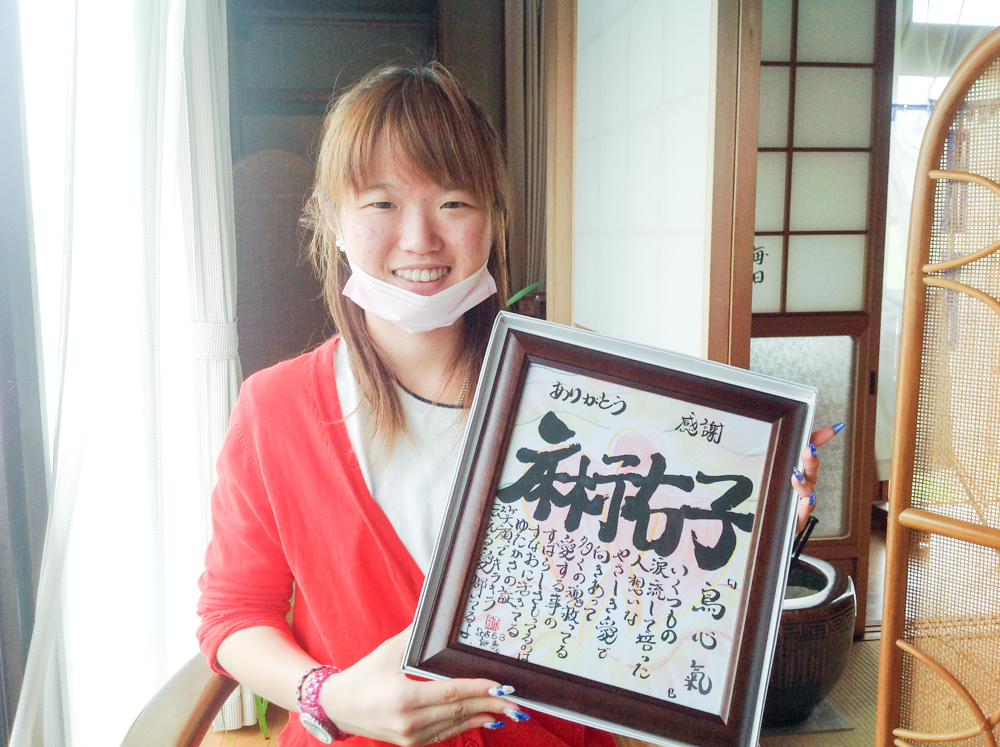 ありがとう
感謝
麻祐子
鳥心氣
いくつもの
涙流して培った
人想いな
やさしき愛で
向きあって
多くの魂救ってる
愛する事の
すばらしさもってるのは
すなおに活きてる
ゆたかさの証
笑顔でキラキラ
毎日